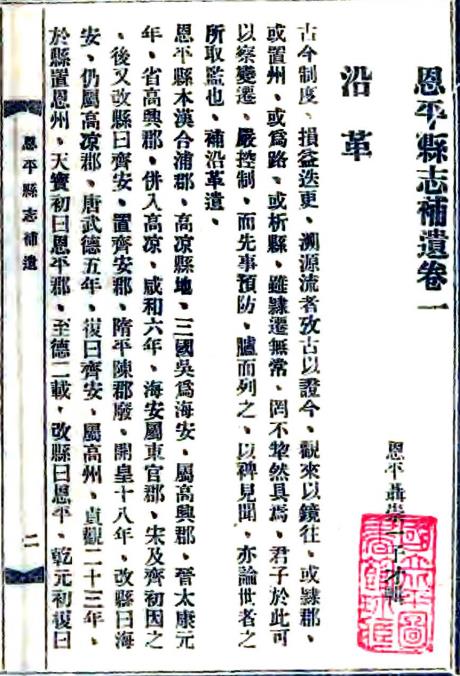 恩平縣志補遺卷一
恩平聶崇一丁才輯
沿革
古今制度、損益迭更、溯源流者攷古以證今、觀來以鏡往、或隸郡、
或置州、或爲路、或析縣、雖隸遷無常、罔不犂然具焉、君子於此可
以察變遷、嚴控制、而先事預防、臚而列之、以裨見聞、亦論世者之
所取監也、補沿革遺、
恩平縣本漢合浦郡、高凉縣地、三國吳爲海安、屬高興郡、晉太康元
年、省高興郡、併入高凉、咸和六年、海安屬東官郡、宋及齊初因之
、後又改縣曰齊安、置齊安郡、隋平陳郡廢、開皇十八年、改縣曰海
安、仍屬高凉郡、唐武德五年、復曰齊安、屬高州、貞觀二十三年、
於縣置恩州、天寶初曰恩平郡、至德二載、改縣曰恩平、乾元初復曰
恩平縣志補遺
二